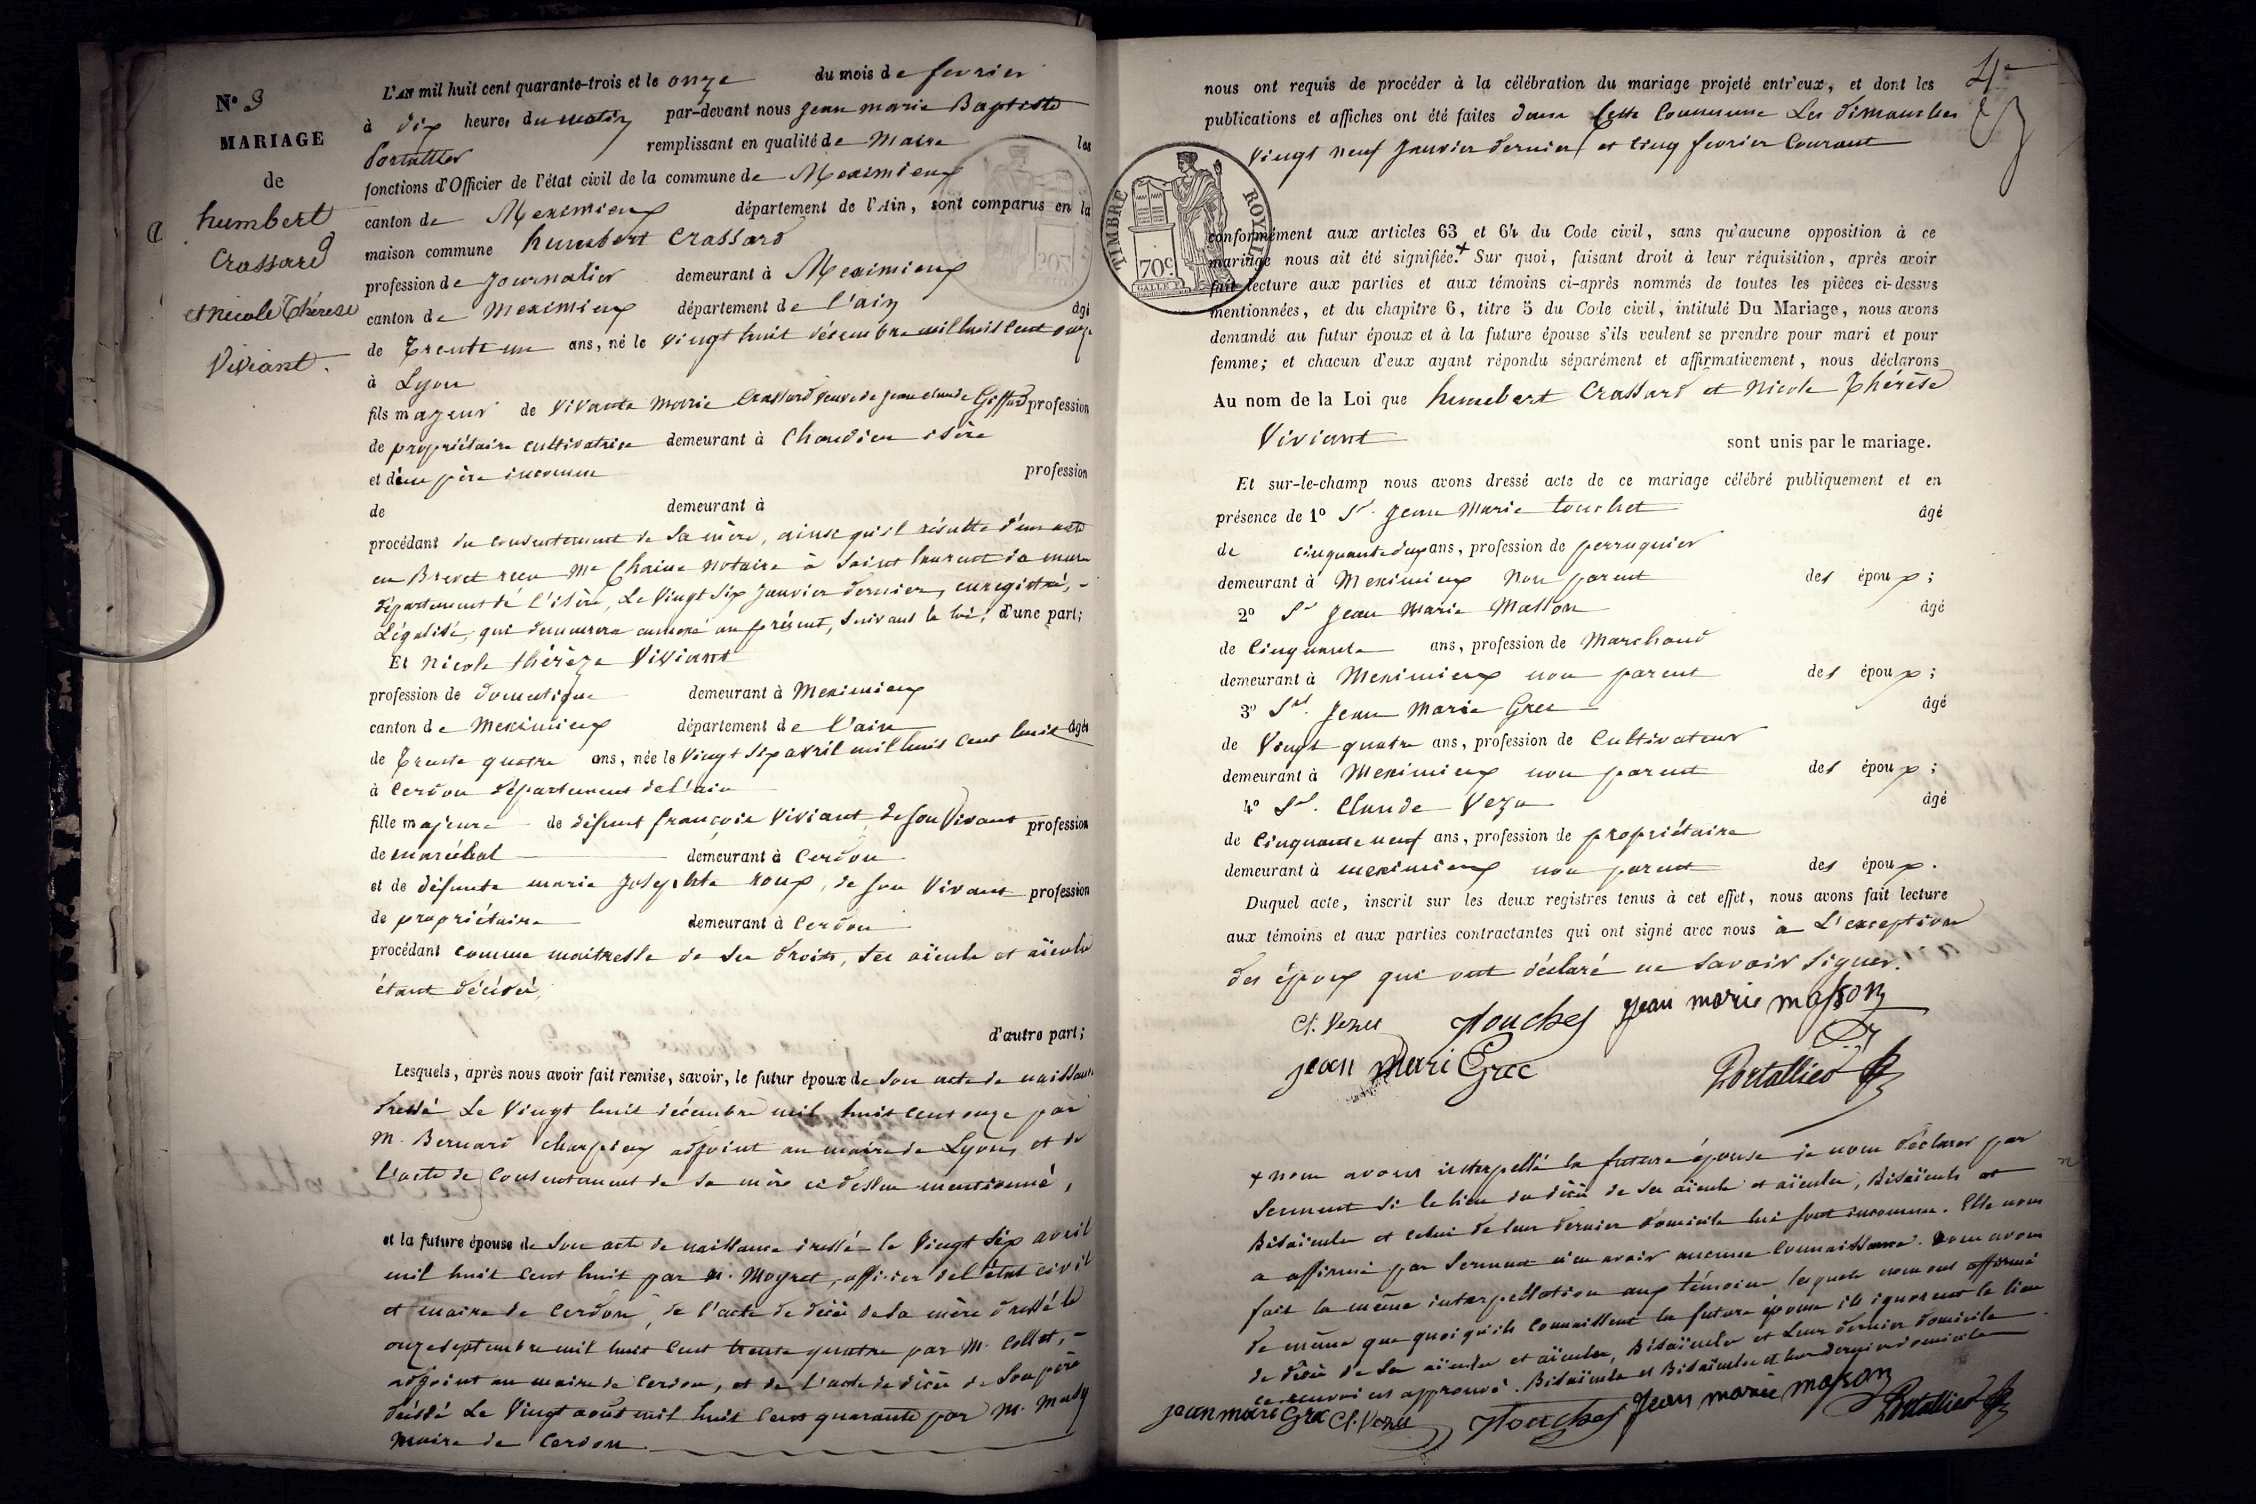 N° 3
MARIAGE
de
humbert
Crassard
et nicole Thérèse
Viviant.
L'AN mil huit cent quarante-trois et le onze du mois de fevrier
à dix heures du matin par-devant nous Jean marie Baptiste
Portallier remplissant en qualité de Maire les
fonctions d'Officier de l'état civil de la commune de Meximieux
canton de Meximieux département de l'Ain, sont comparus en la
maison commune humbert Crassard
profession de Journalier demeurant à Meximieux
canton de Meximieux département de l'ain âgé
de Trente un ans, né le vingt huit décembre mil huit cent onze
à Lyon
fils majeur de vivante Marie Crassard veuve de jean claude Giffard profession
de propriétaire cultivatrice demeurant à Chandieu isère
et d'un père inconnu profession
de demeurant à
procédant du consentement de sa mère, ainsi qu'il résulte d'un acte
en Brevet reçu Me Chaine notaire à Saint laurent de mure
département de l'isère, Le vingt six janvier dernier, enregistré,
Légalisé, qui demeurera annexé au présent, suivant la loi; d'une part;
Et Nicole thérèze Viviant
profession de domestique demeurant à Meximieux
canton de Meximieux département de l'ain âgée
de Trente quatre ans, née le vingt six avril mil huit cent huit
à Cerdon département de l'ain
fille majeure de défunt françois Viviant de son Vivant profession
de maréchal demeurant à Cerdon
et de défunte marie Josephte roux, de son Vivant profession
de propriétaire demeurant à Cerdon
procédant comme maitresse de ses droits, ses aïeuls et aïeules
étant décédés,
d'autre part;
Lesquels, après nous avoir fait remise, savoir, le futur époux de son acte de naissance
dressé Le Vingt huit décembre mil huit cent onze par
M. Bernard Charpieux adjoint au maire de Lyon, et de
L'acte de Consentement de sa mère ci dessus mentionné,
et la future épouse de son acte de naissance dressé le vingt six avril
mil huit cent huit par M. Moyret, officier de l'état civil
et maire de Cerdon, de l'acte de décès de la mère dressé le
onze septembre mil huit cent trente quatre par M. Collet,
adjoint au maire de Cerdon, et de L'acte de décès de son père
dressé Le Vingt août mil huit cent quarante par M.
maire de Cerdon
4e
nous ont requis de procéder à la célébration du mariage projeté entr'eux, et dont les
publications et affiches ont été faites dans Cette Commune Les dimanches
vingt neuf Janvier dernier et cinq fevrier Courant
TIMBRE ROYAL
70c
conformément aux articles 63 et 64 du Code civil, sans qu'aucune opposition à ce
mariage nous ait été signifiée.+ Sur quoi, faisant droit à leur réquisition, après avoir
fait lecture aux parties et aux témoins ci-après nommés de toutes les pièces ci-dessus
mentionnées, et du chapitre 6, titre 5 du Code civil, intitulé Du Mariage, nous avons
demandé au futur époux et à la future épouse s'ils veulent se prendre pour mari et pour
femme; et chacun d'eux ayant répondu séparément et affirmativement, nous déclarons
Au nom de la Loi que humbert Crassard et Nicole Thérèse
Viviant sont unis par le mariage.
Et sur-le-champ nous avons dressé acte de ce mariage célébré publiquement et en
présence de 1° Sr. Jean Marie touchet âgé
de cinquante deux ans, profession de perruquier
demeurant à Meximieux Non parent des époux;
2° Sr Jean Marie Masson âgé
de Cinquante ans, profession de Marchand
demeurant à Meximieux non parent des époux;
3° Sr. Jean Marie Grec âgé
de Vingt quatre ans, profession de Cultivateur
demeurant à Meximieux non parent des époux;
4° Sr. Claude Vezu âgé
de Cinquante neuf ans, profession de propriétaire
demeurant à meximieux non parent des époux.
Duquel acte, inscrit sur les deux registres tenus à cet effet, nous avons fait lecture
aux témoins et aux parties contractantes qui ont signé avec nous à L'exception
des époux qui ont déclaré ne savoir signer.
Cl. Vezu Touchet Jean marie masson
jean Mari Grec Portallier
+ nous avons interpellé la future épouse de nous déclarer par
Serment si le lieu du décès de ses aïeuls et aïeules, Bisaïeuls et
Bisaïeules et celui de leur dernier domicile lui sont inconnus. Elle nous
a affirmé par Serment n'en avoir aucune Connaissance. nous avons
fait la même interpellation aux témoins lesquels nous ont affirmé
de même que quoiqu'ils Connaissent la future épouse ils ignorent le lieu
de décès de ses aïeules et aïeules, Bisaïeules et Leur dernier domicile
ce renvoi est approuvé. Bisaïeuls et Bisaïeules et leur dernier domicile
jean mari Grec Cl. Vezu Touchet Jean marie masson Portallier